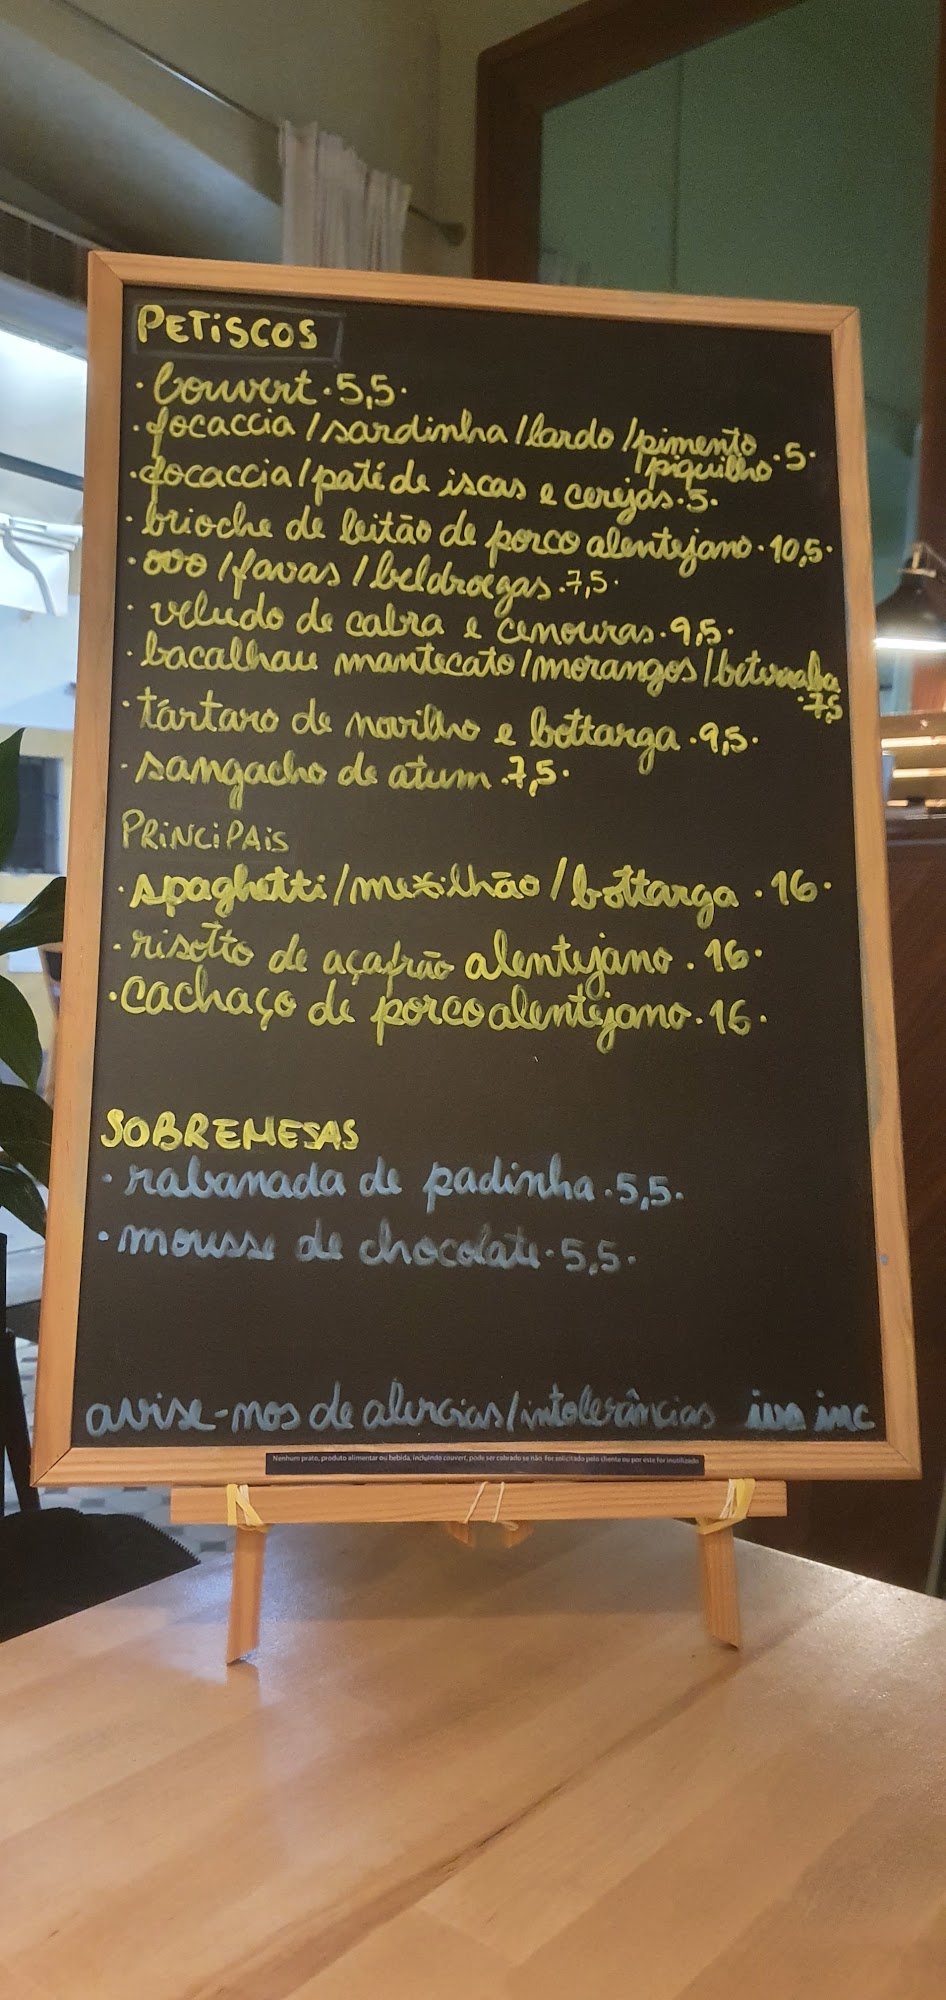 PETISCOS
· Couvert · 5,5 ·
· focaccia / sardinha / lardo / pimento · 5 ·
piquilho
· focaccia / paté de iscas e cerejas · 5 ·
· brioche de leitão de porco alentejano · 10,5 ·
· ovo / favas / beldroegas · 7,5 ·
· veludo de cabra e cenouras · 9,5 ·
· bacalhau mantecato / morangos / beterraba
· 7,5
· tártaro de novilho e bottarga · 9,5 ·
· sangacho de atum · 7,5 ·
PRINCIPAIS
· spaghetti / mexilhão / bottarga · 16 ·
· risotto de açafrão alentejano · 16 ·
· cachaço de porco alentejano · 16 ·
SOBREMESAS
· rabanada de padinha · 5,5 ·
· mousse de chocolate · 5,5 ·
avise-nos de alergias / intolerâncias iva inc
Nenhum prato, produto alimentar ou bebida, incluindo couvert, pode ser cobrado se não for solicitado pelo cliente ou por este for inutilizado